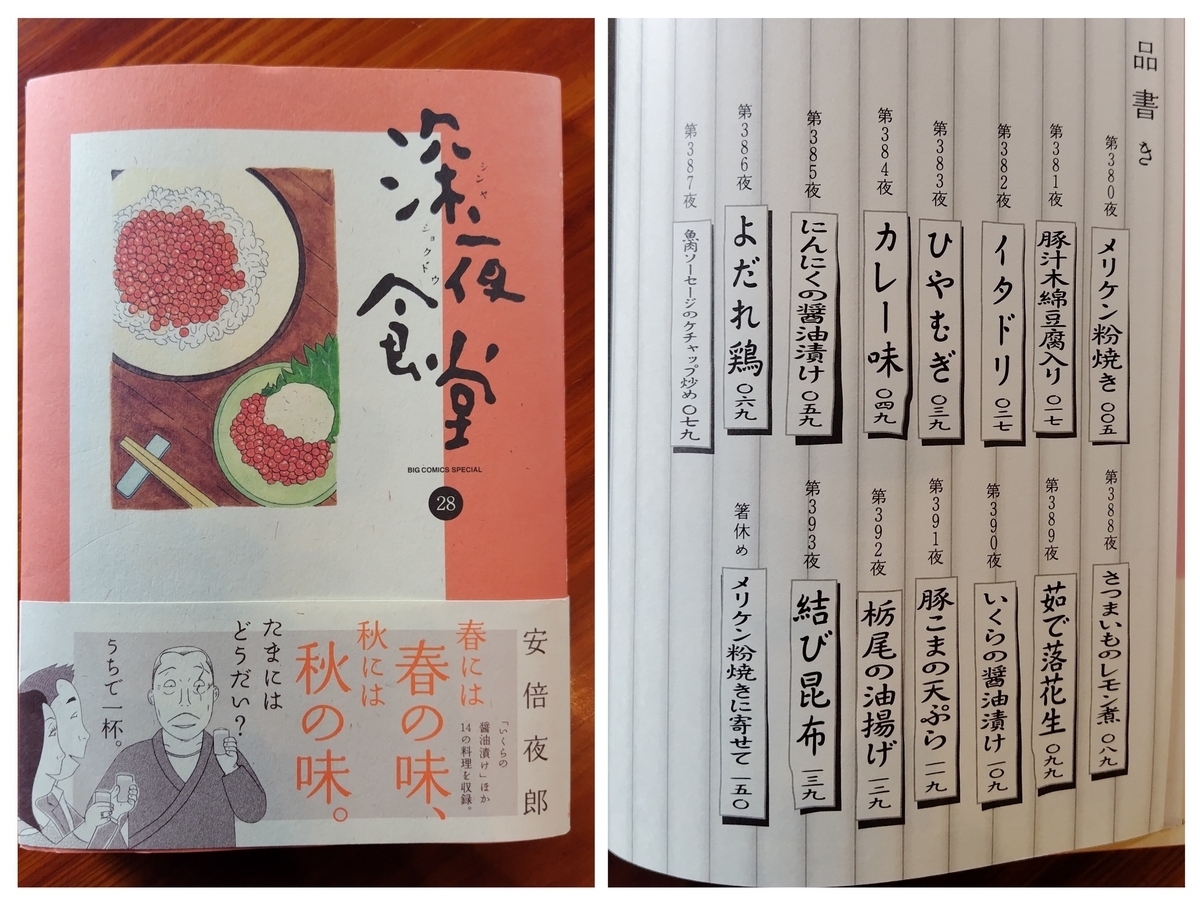 深夜食堂
シンヤ
ショクドウ
BIG COMICS SPECIAL
28
安倍夜郎
「いくらの
醤油漬け」ほか
14の料理を収録。
春には
春の味、
秋には
秋の味。
たまには
どうだい?
うちで一杯。
品書き
第380夜
メリケン粉焼き 〇〇五
第381夜
豚汁木綿豆腐入り 〇一七
第382夜
イタドリ 〇二七
第383夜
ひやむぎ 〇三九
第384夜
カレー味 〇四九
第385夜
にんにくの醤油漬け 〇五九
第386夜
よだれ鶏 〇六九
第387夜
魚肉ソーセージのケチャップ炒め 〇七九
第388夜
さつまいものレモン煮 〇八九
第389夜
茹で落花生 〇九九
第390夜
いくらの醤油漬け 一〇九
第391夜
豚こまの天ぷら 一一九
第392夜
栃尾の油揚げ 一二九
第393夜
結び昆布 一三九
箸休め
メリケン粉焼きに寄せて 一五〇